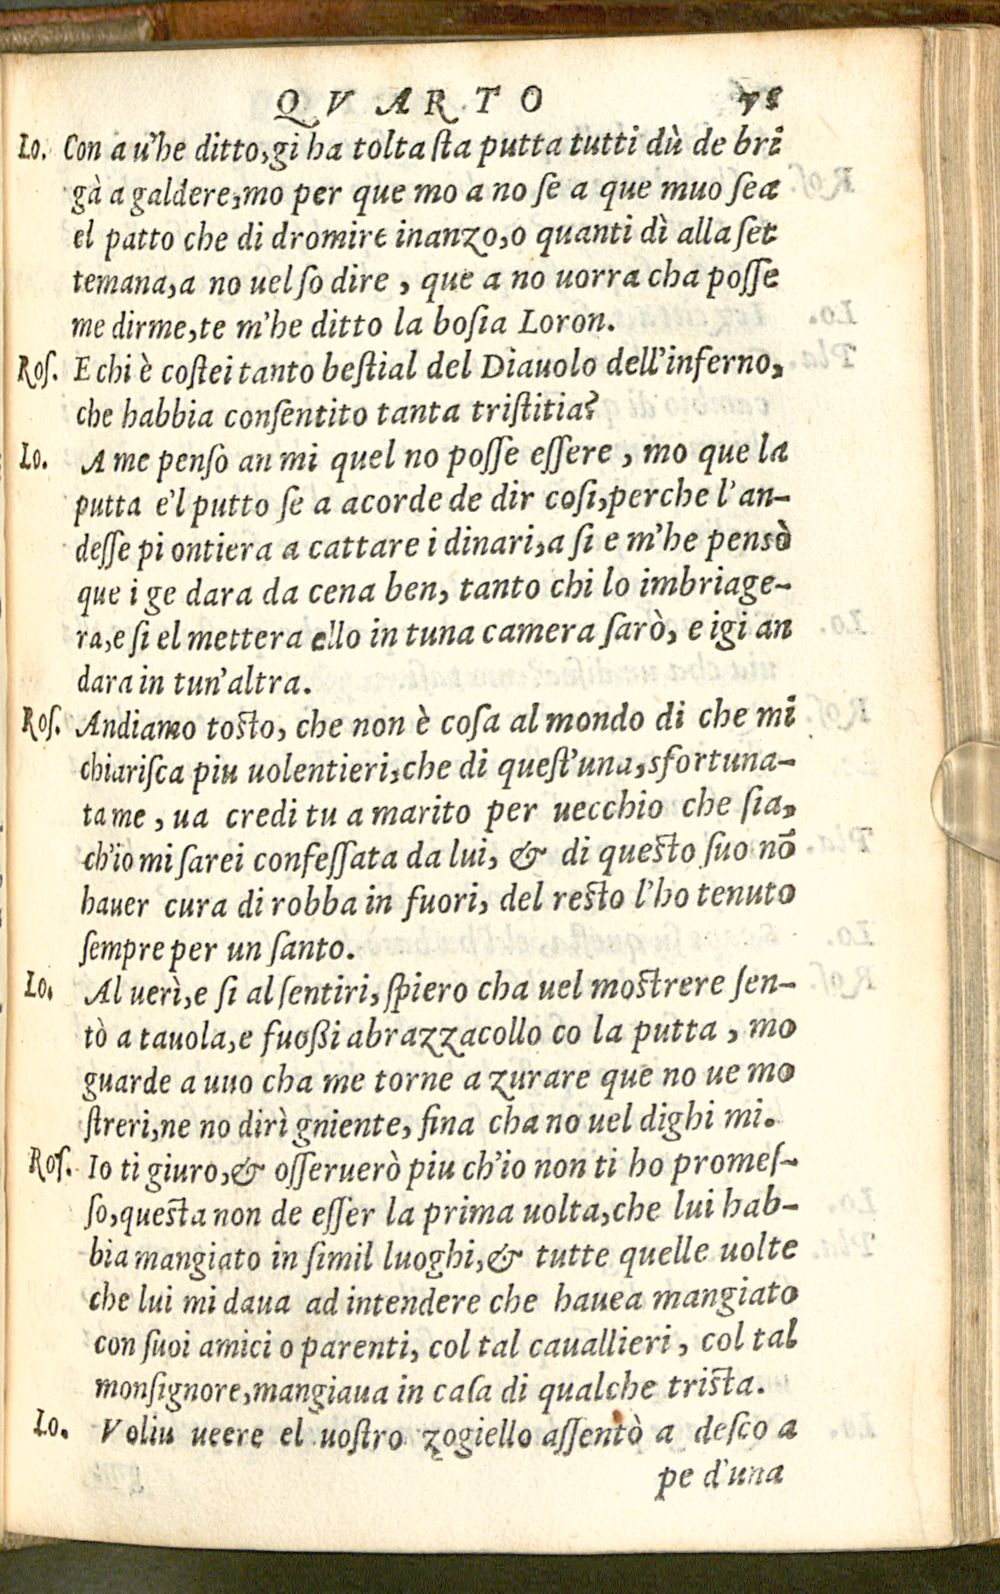 QVARTO
Lo. Con a u'he ditto, gi ha tolta sta putta tutti dù de bri
gà a galdere, mo per que mo a no se a que muo sea
el patto che di dromire inanzo, o quanti dì alla set
temana, a no uel so dire, que a no uorra cha posse
me dirme, te m'he ditto la bosia Loron.
Ros. E chi è costei tanto bestial del Diauolo dell'inferno,
che habbia consentito tanta tristitia?
Lo. A me penso an mi quel no posse essere, mo que la
putta e'l putto se a acorde de dir cosi, perche l'an-
desse pi ontiera a cattare i dinari, a si e m'he pensò
que i ge dara da cena ben, tanto chi lo imbriage-
ra, e si el mettera ello in tuna camera sarò, e igi an
dara in tun'altra.
Ros. Andiamo tosto, che non è cosa al mondo di che mi
chiarisca piu uolentieri, che di quest'una, sfortuna-
ta me, ua credi tu a marito per uecchio che sia,
ch'io mi sarei confessata da lui, & di questo suo nō
hauer cura di robba in fuori, del resto l'ho tenuto
sempre per un santo.
Lo. Al uerì, e si al sentiri, spiero cha uel mostrere sen-
tò a tauola, e fuoßi abrazzacollo co la putta, mo
guarde a uuo cha me torne a zurare que no ue mo
streri, ne no dirì gniente, fina cha no uel dighi mi.
Ros. Io ti giuro, & osseruerò piu ch'io non ti ho promes-
so, questa non de esser la prima uolta, che lui hab-
bia mangiato in simil luoghi, & tutte quelle uolte
che lui mi daua ad intendere che hauea mangiato
con suoi amici o parenti, col tal cauallieri, col tal
monsignore, mangiaua in casa di qualche trista.
Lo. Voliu ueere el uostro zogiello assentò a desco a
pe d'una